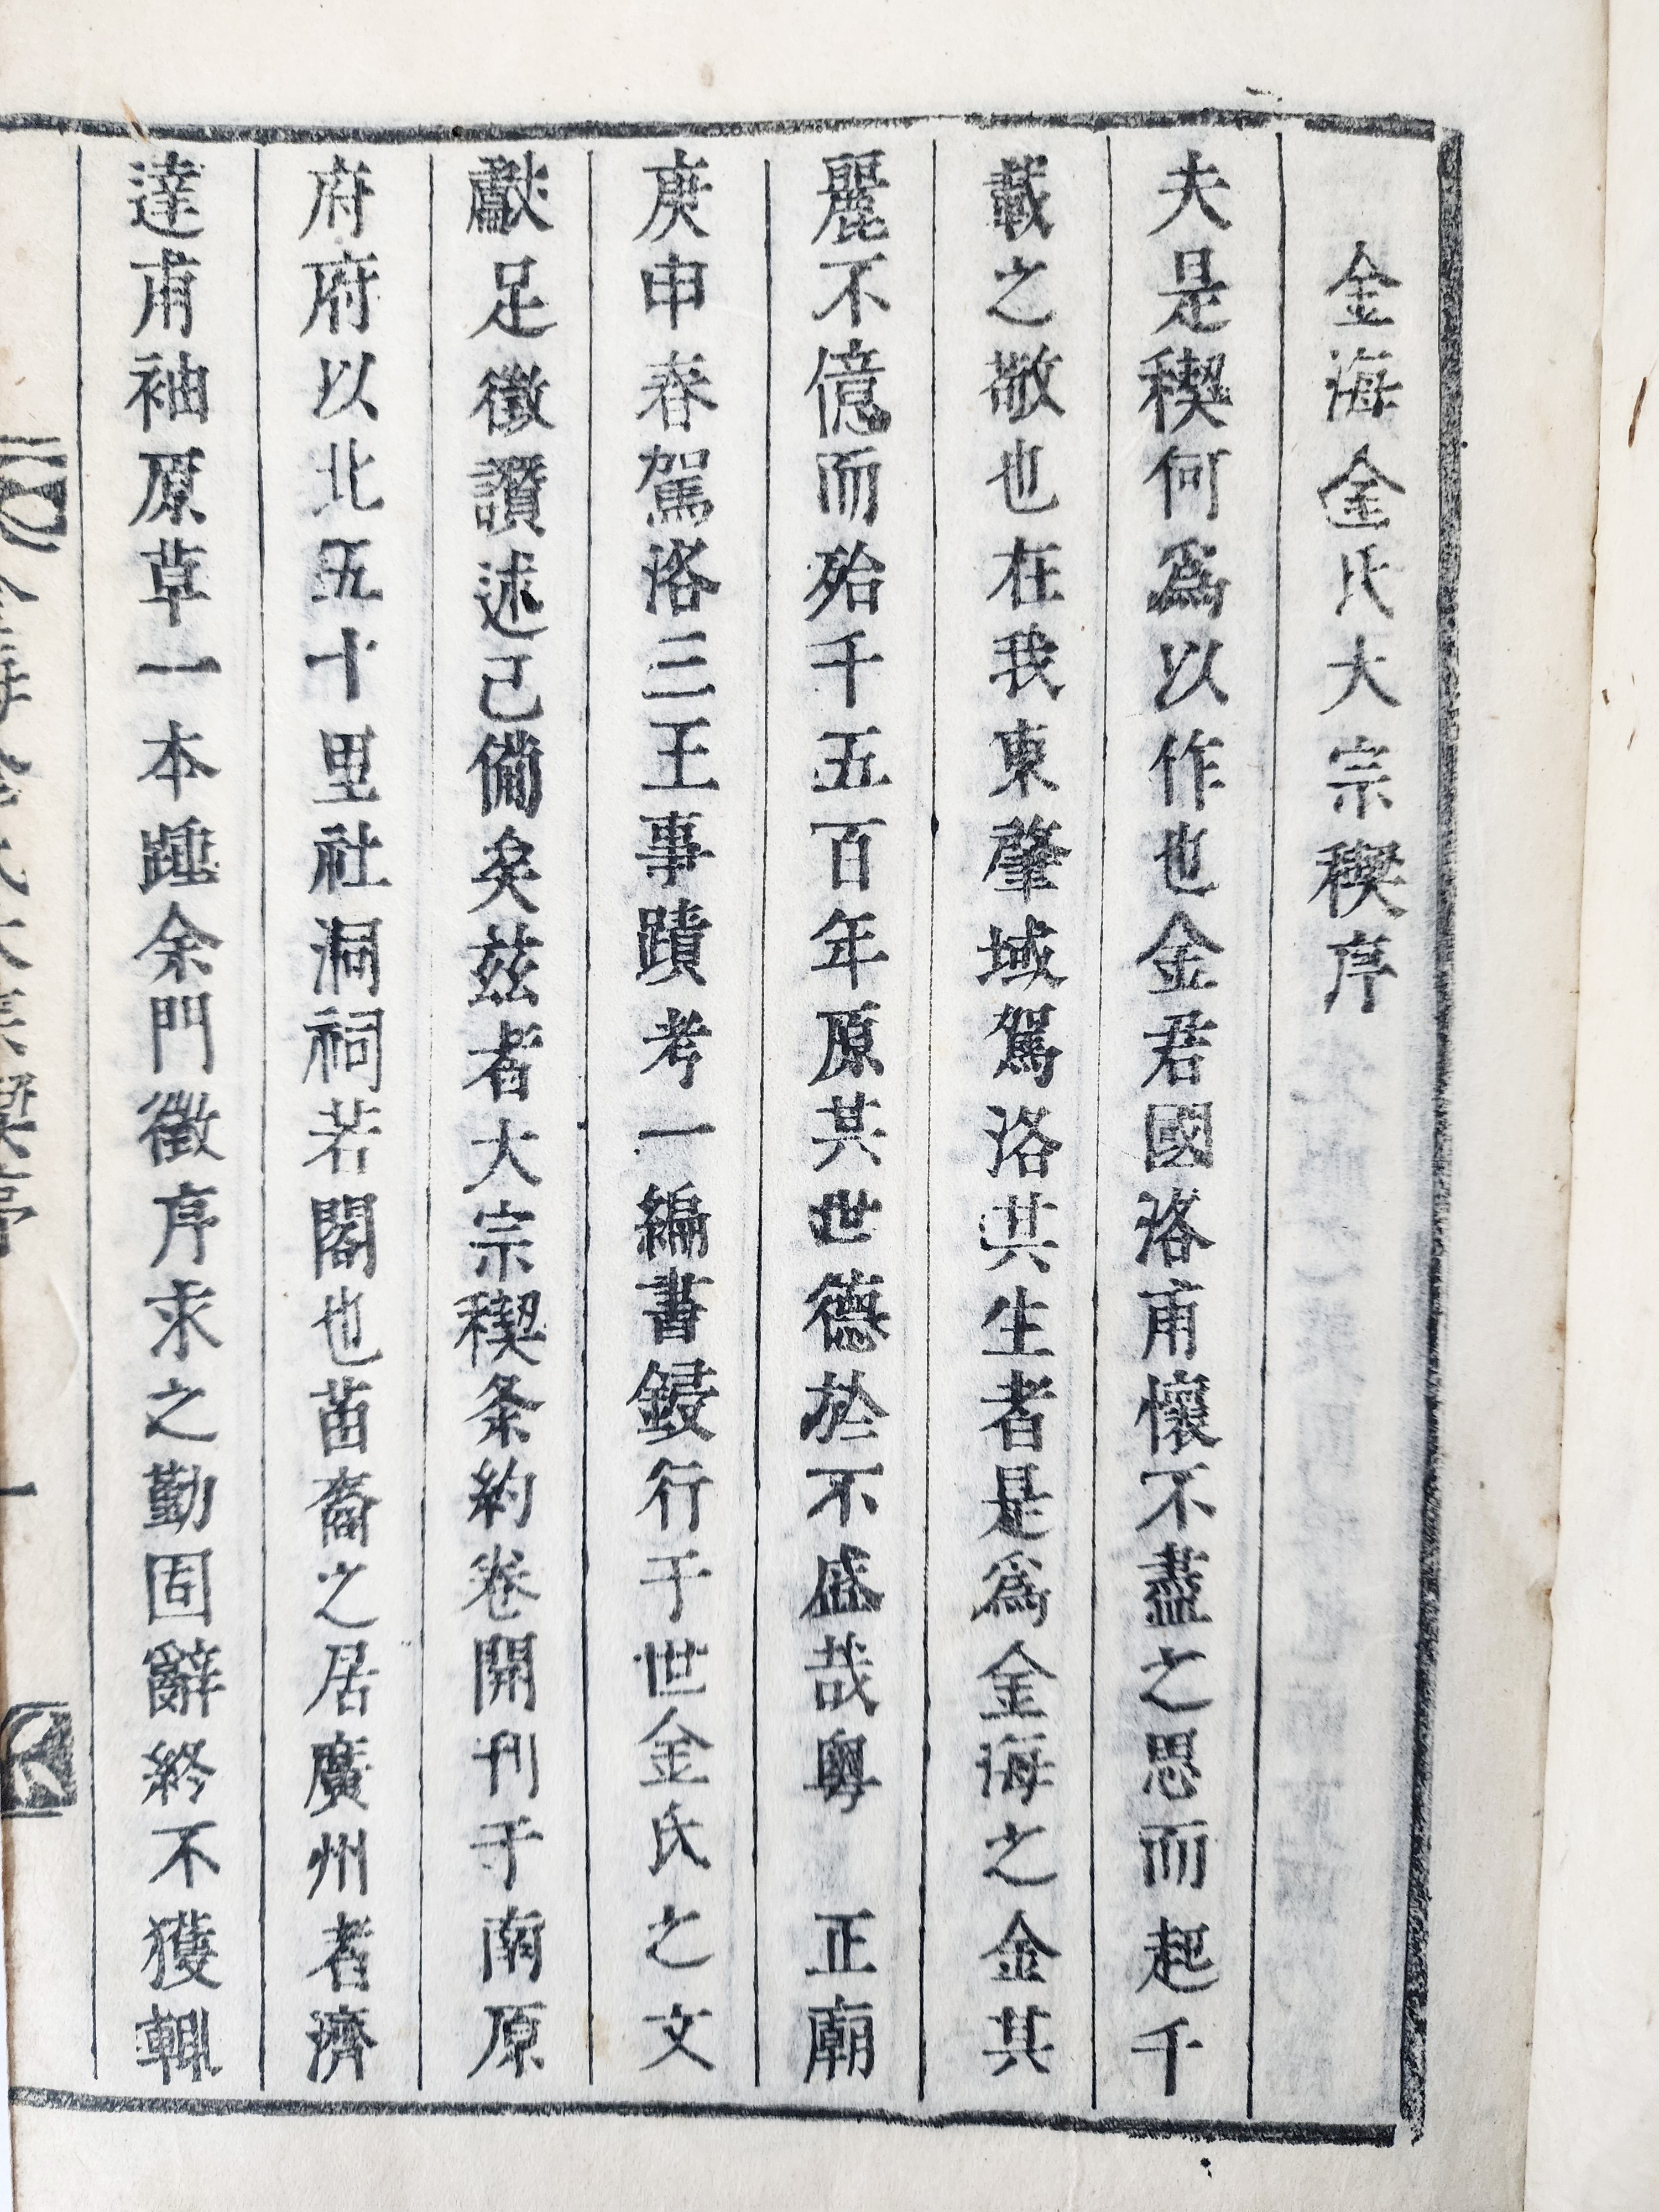 金海金氏大宗稧序
夫是稧何爲以作也金君國洛甫懷不盡之思而起千
載之敬也在我東肇域駕洛其生者是爲金海之金其
麗不億而殆千五百年原其世德於不盛哉粤 正廟
庚申春駕洛三王事蹟考一編書鋟行于世金氏之文
獻足徵讚述已備矣茲者大宗稧条約卷開刊于南原
府府以北五十里社洞祠若閣也苗裔之居廣州者濟
達甫袖原草一本踵余門徵序求之勤固辭終不獲輒
金海金氏大宗稧序
一